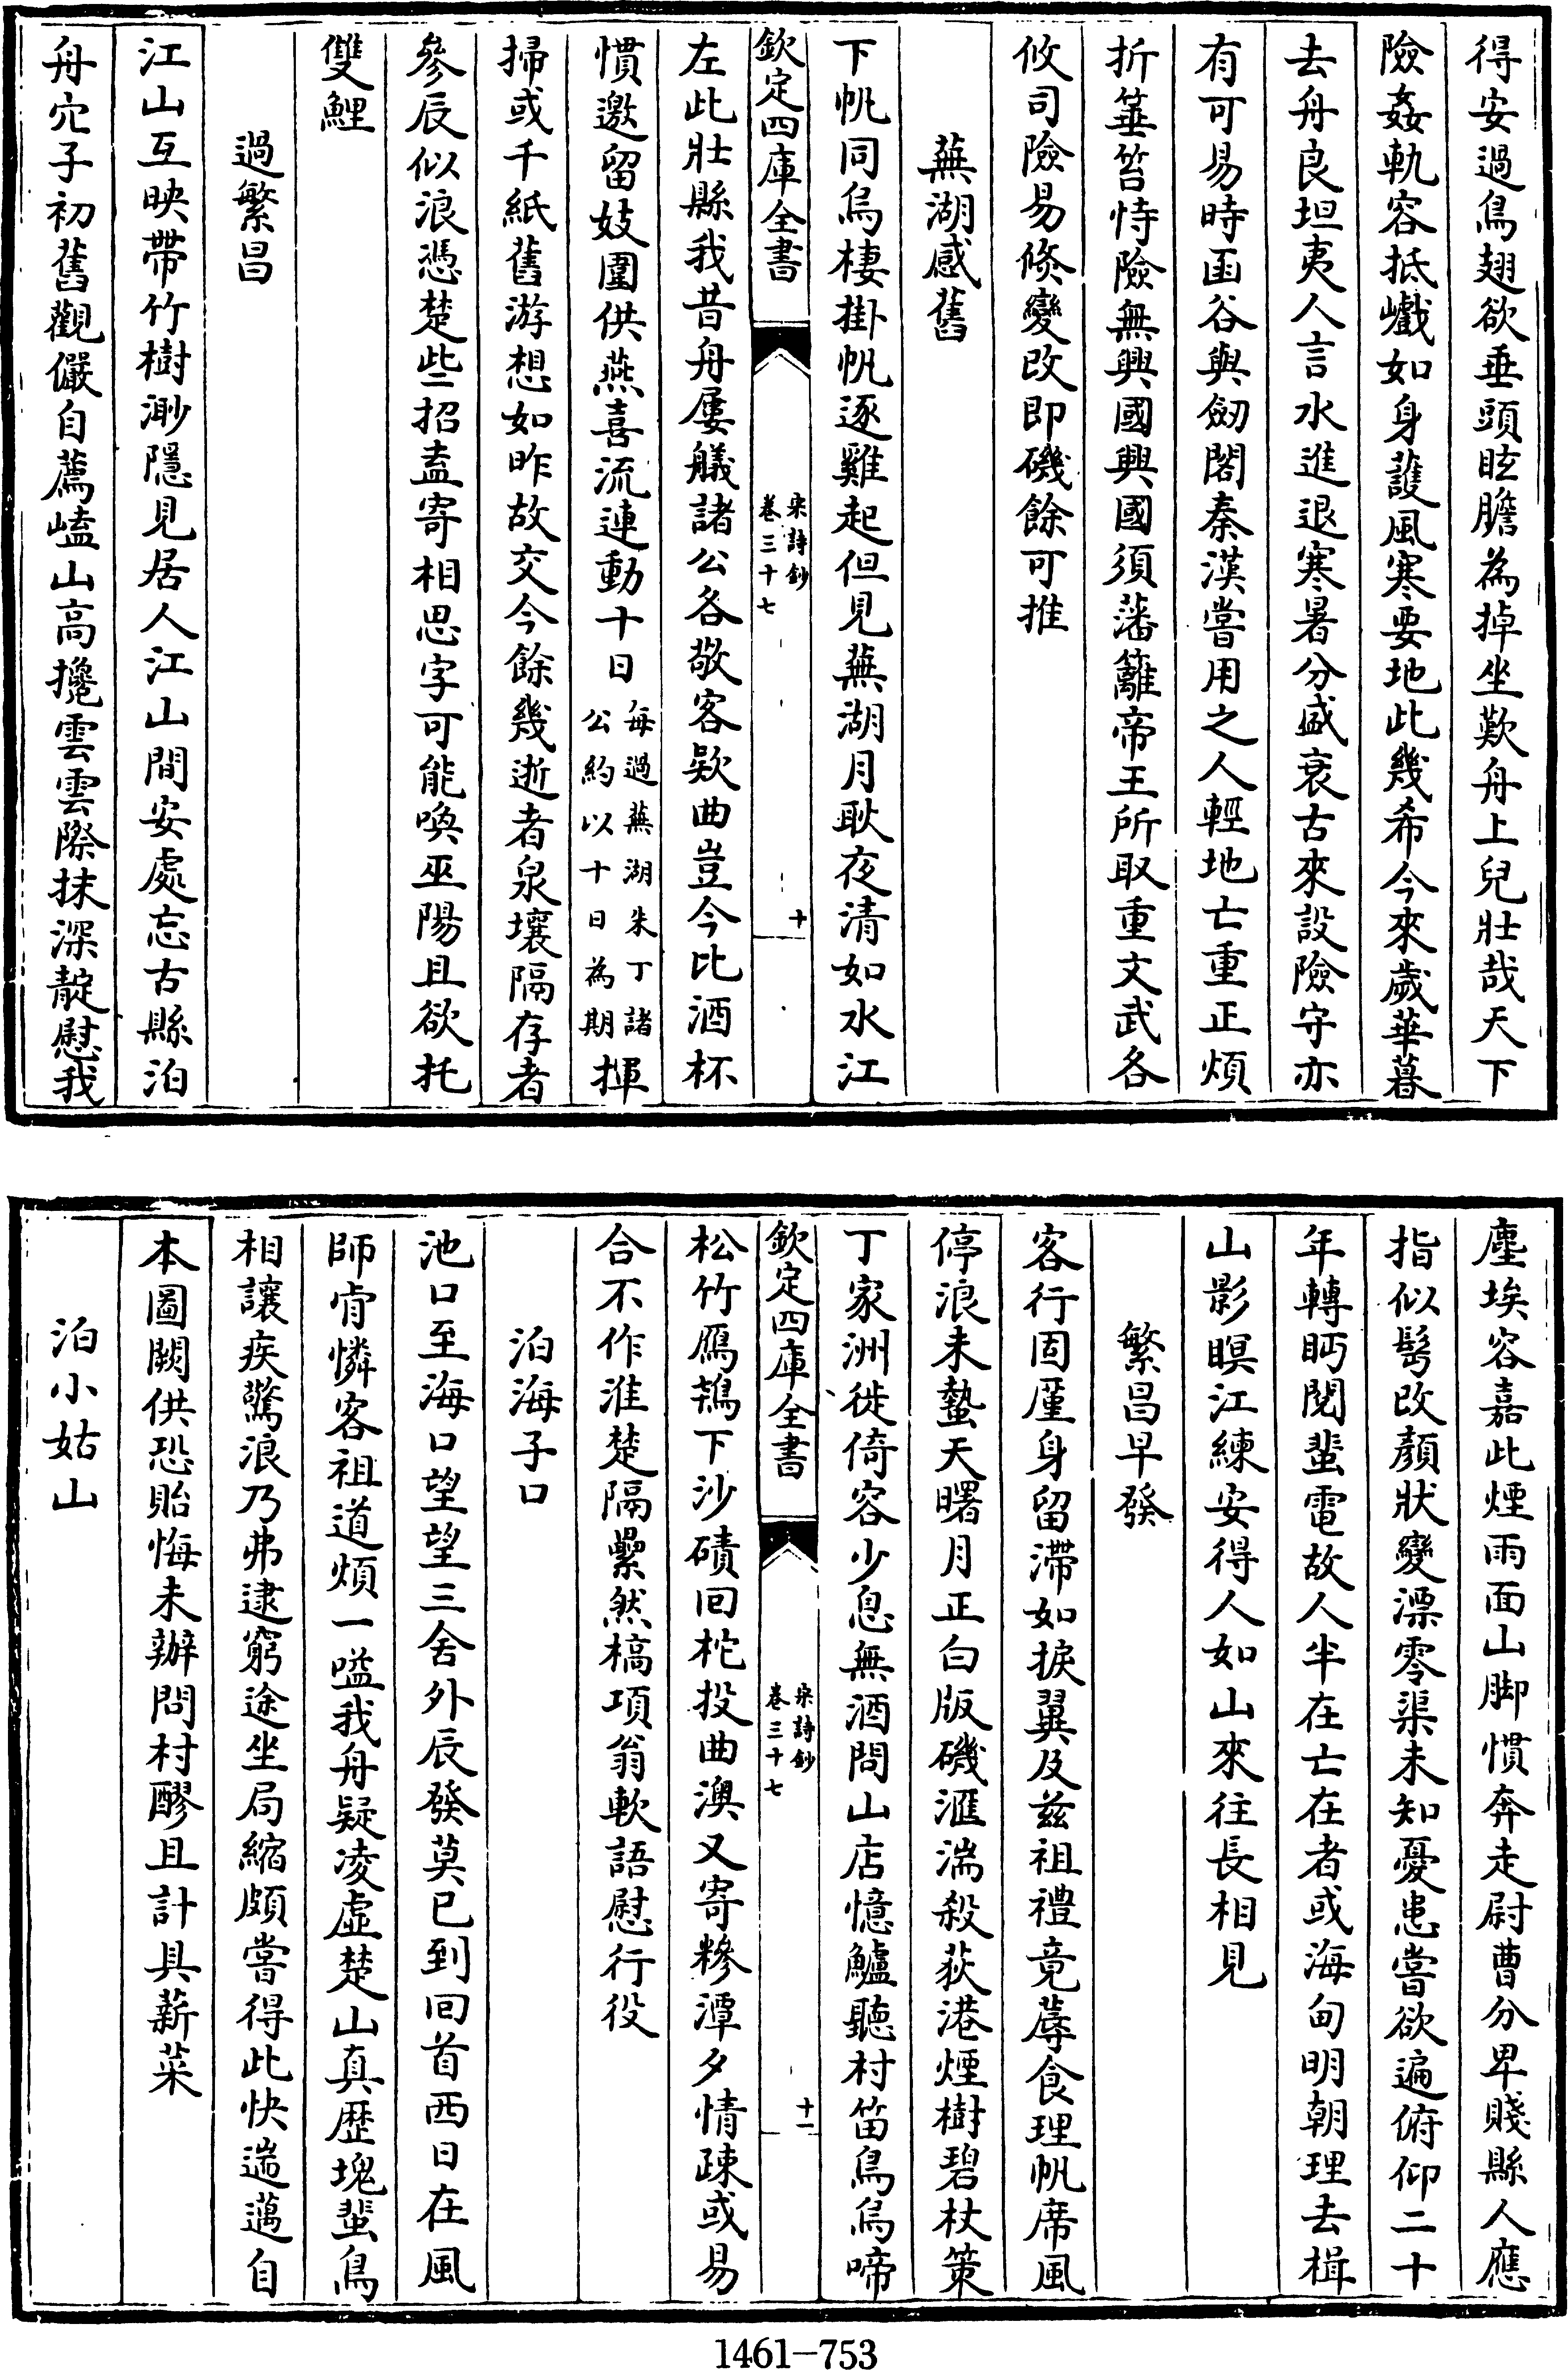 得安過鳥翅欲垂頭眩膽為掉坐歎舟上兒壯哉天下
險姦軌容抵巇如身護風寒要地此幾希今來歲華暮
去舟良坦夷人言水進退寒暑分盛衰古來設險守亦
有可易時函谷與劒閣秦漢嘗用之人輕地亡重正煩
折箠笞恃險無興國興國須藩籬帝王所取重文武各
攸司險易倐變改即磯餘可推
蕪湖感舊
下帆同烏棲掛帆逐雞起但見蕪湖月耿夜清如水江
欽定四庫全書
宋詩鈔
卷三十七
十
左此壯縣我昔舟屢艤諸公各敬客欵曲豈今比酒杯
慣邀留妓圍供燕喜流連動十日每過蕪湖朱丁諸公約以十日為期揮
掃或千紙舊游想如昨故交今餘幾逝者泉壤隔存者
參辰似浪憑楚些招盍寄相思字可能喚巫陽且欲托
雙鯉
過繁昌
江山互映帶竹樹渺隱見居人江山間安處忘古縣泊
舟穴子初舊觀儼自薦嶔山高攙雲雲際抹深靛慰我
塵埃容嘉此煙雨面山脚慣奔走尉曹分卑賤縣人應
指似髩改顏狀變漂零渠未知憂患嘗欲遍俯仰二十
年轉眄閱蜚電故人半在亡在者或海甸明朝理去楫
山影瞑江練安得人如山來往長相見
繁昌早發
客行固厪身留滯如捩翼及兹祖禮竟蓐食理帆席風
停浪未蟄天曙月正白版磯滙湍殺荻港煙樹碧杖策
丁家洲徙倚容少息無酒問山店憶鱸聽村笛鳥烏啼
欽定四庫全書
宋詩鈔
卷三十七
十一
松竹鴈鴂下沙磧囘柁投曲澳又寄糝潭夕情疎或易
合不作淮楚隔纍然槁項翁軟語慰行役
泊海子口
池口至海口望望三舍外辰發莫已到囘首西日在風
師肯憐客祖道煩一噫我舟疑凌虛楚山真歴塊蜚鳥
相讓疾驚浪乃弗逮窮途坐局縮頗嘗得此快遄邁自
本圖闕供恐貽悔未辦問村醪且計具薪菜
泊小姑山
1461-753